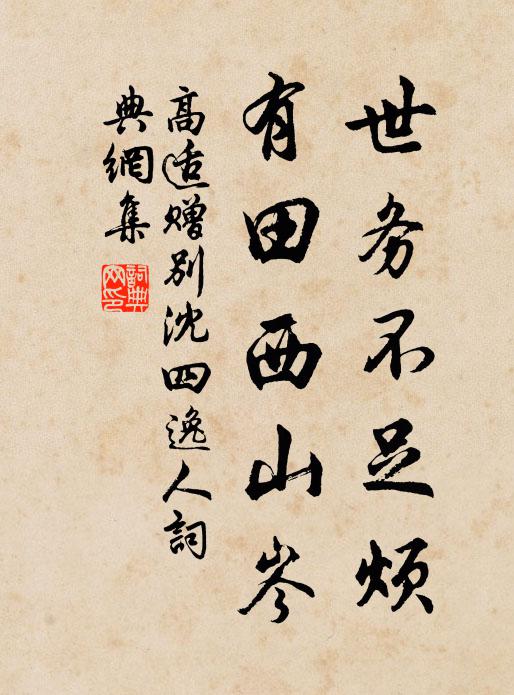 世务不足烦
有田西山岑
高适赠别沈四逸人詞
典網集
詞典网印